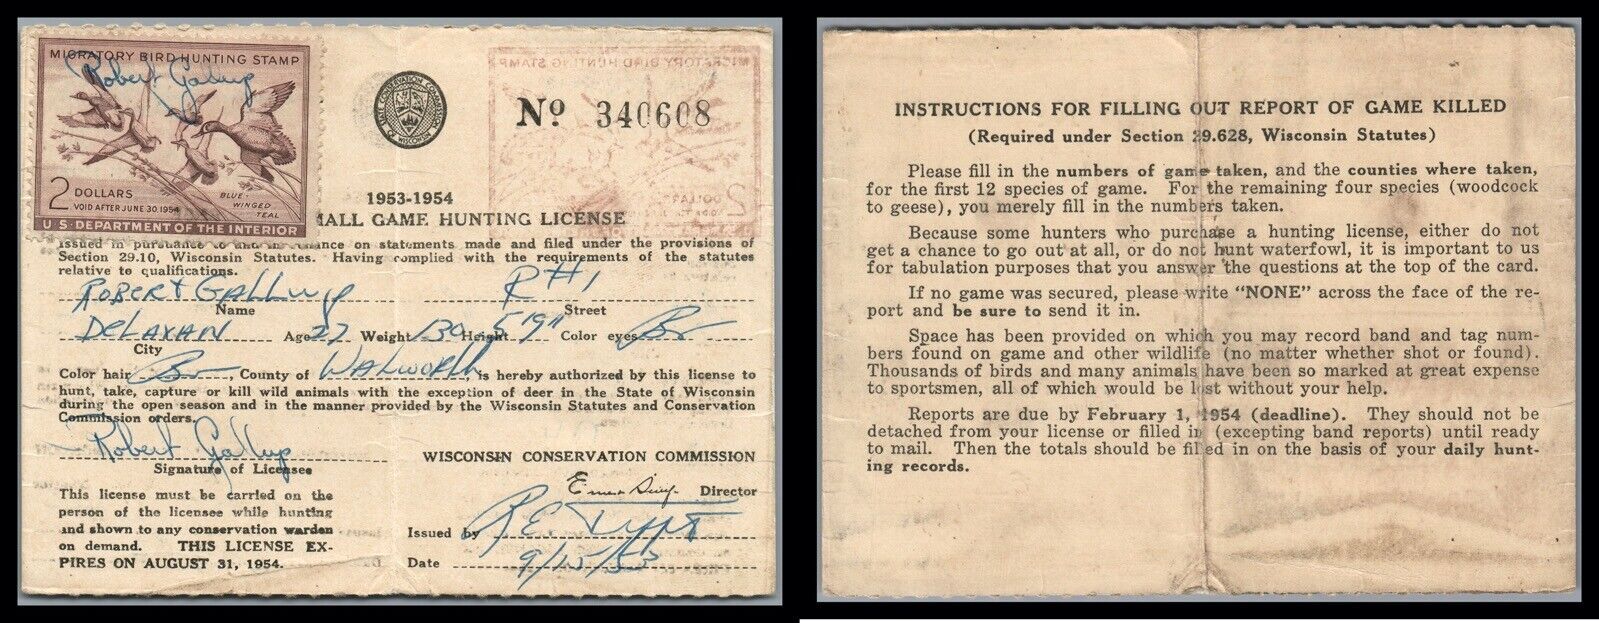 MIGRATORY BIRD HUNTING STAMP
Robert Gallup
2 DOLLARS
VOID AFTER JUNE 30 1954
BLUE-
WINGED
TEAL
U.S. DEPARTMENT OF THE INTERIOR
STATE CONSERVATION COMMISSION
OF WISCONSIN
No. 340608
1953-1954
MALL GAME HUNTING LICENSE
Issued in pursuance to and in reliance on statements made and filed under the provisions of
Section 29.10, Wisconsin Statutes. Having complied with the requirements of the statutes
relative to qualifications.
ROBERT GALLUP R#1
Name Street
DELAVAN Age 27 Weight 130 Height 5'9" Color eyes Br
City
Color hair Br, County of WALWORTH, is hereby authorized by this license to
hunt, take, capture or kill wild animals with the exception of deer in the State of Wisconsin
during the open season and in the manner provided by the Wisconsin Statutes and Conservation
Commission orders.
Robert Gallup
Signature of Licensee
WISCONSIN CONSERVATION COMMISSION
Director
This license must be carried on the
person of the licensee while hunting
and shown to any conservation warden
on demand. THIS LICENSE EX-
PIRES ON AUGUST 31, 1954.
Issued by R.E.
Date 9/15/53
INSTRUCTIONS FOR FILLING OUT REPORT OF GAME KILLED
(Required under Section 29.628, Wisconsin Statutes)
Please fill in the numbers of game taken, and the counties where taken,
for the first 12 species of game. For the remaining four species (woodcock
to geese), you merely fill in the numbers taken.
Because some hunters who purchase a hunting license, either do not
get a chance to go out at all, or do not hunt waterfowl, it is important to us
for tabulation purposes that you answer the questions at the top of the card.
If no game was secured, please write "NONE" across the face of the re-
port and be sure to send it in.
Space has been provided on which you may record band and tag num-
bers found on game and other wildlife (no matter whether shot or found).
Thousands of birds and many animals have been so marked at great expense
to sportsmen, all of which would be lost without your help.
Reports are due by February 1, 1954 (deadline). They should not be
detached from your license or filled in (excepting band reports) until ready
to mail. Then the totals should be filled in on the basis of your daily hunt-
ing records.